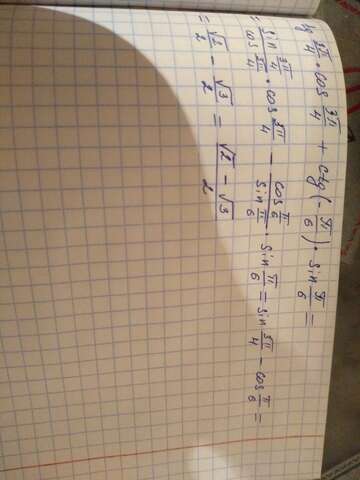 tg 3π/4 · cos 3π/4 + ctg(-π/6) · sin π/6 =
= (sin 3π/4)/(cos 3π/4) · cos 3π/4 - (cos π/6)/(sin π/6) · sin π/6 = sin 3π/4 - cos π/6 =
= √2/2 - √3/2 = (√2 - √3)/2